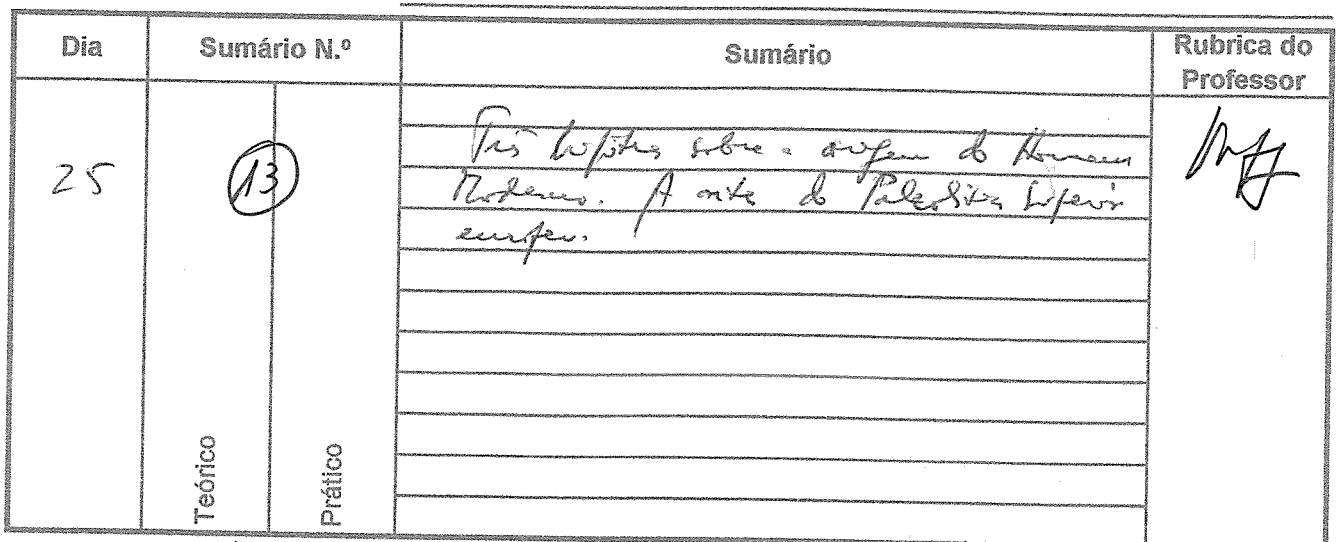 Dia
Sumário N.º
Sumário
Rubrica do
Professor
25
13
Três hipóteses sobre a origem do Homem
Moderno. A arte do Paleolítico Superior
europeu.
Teórico
Prático